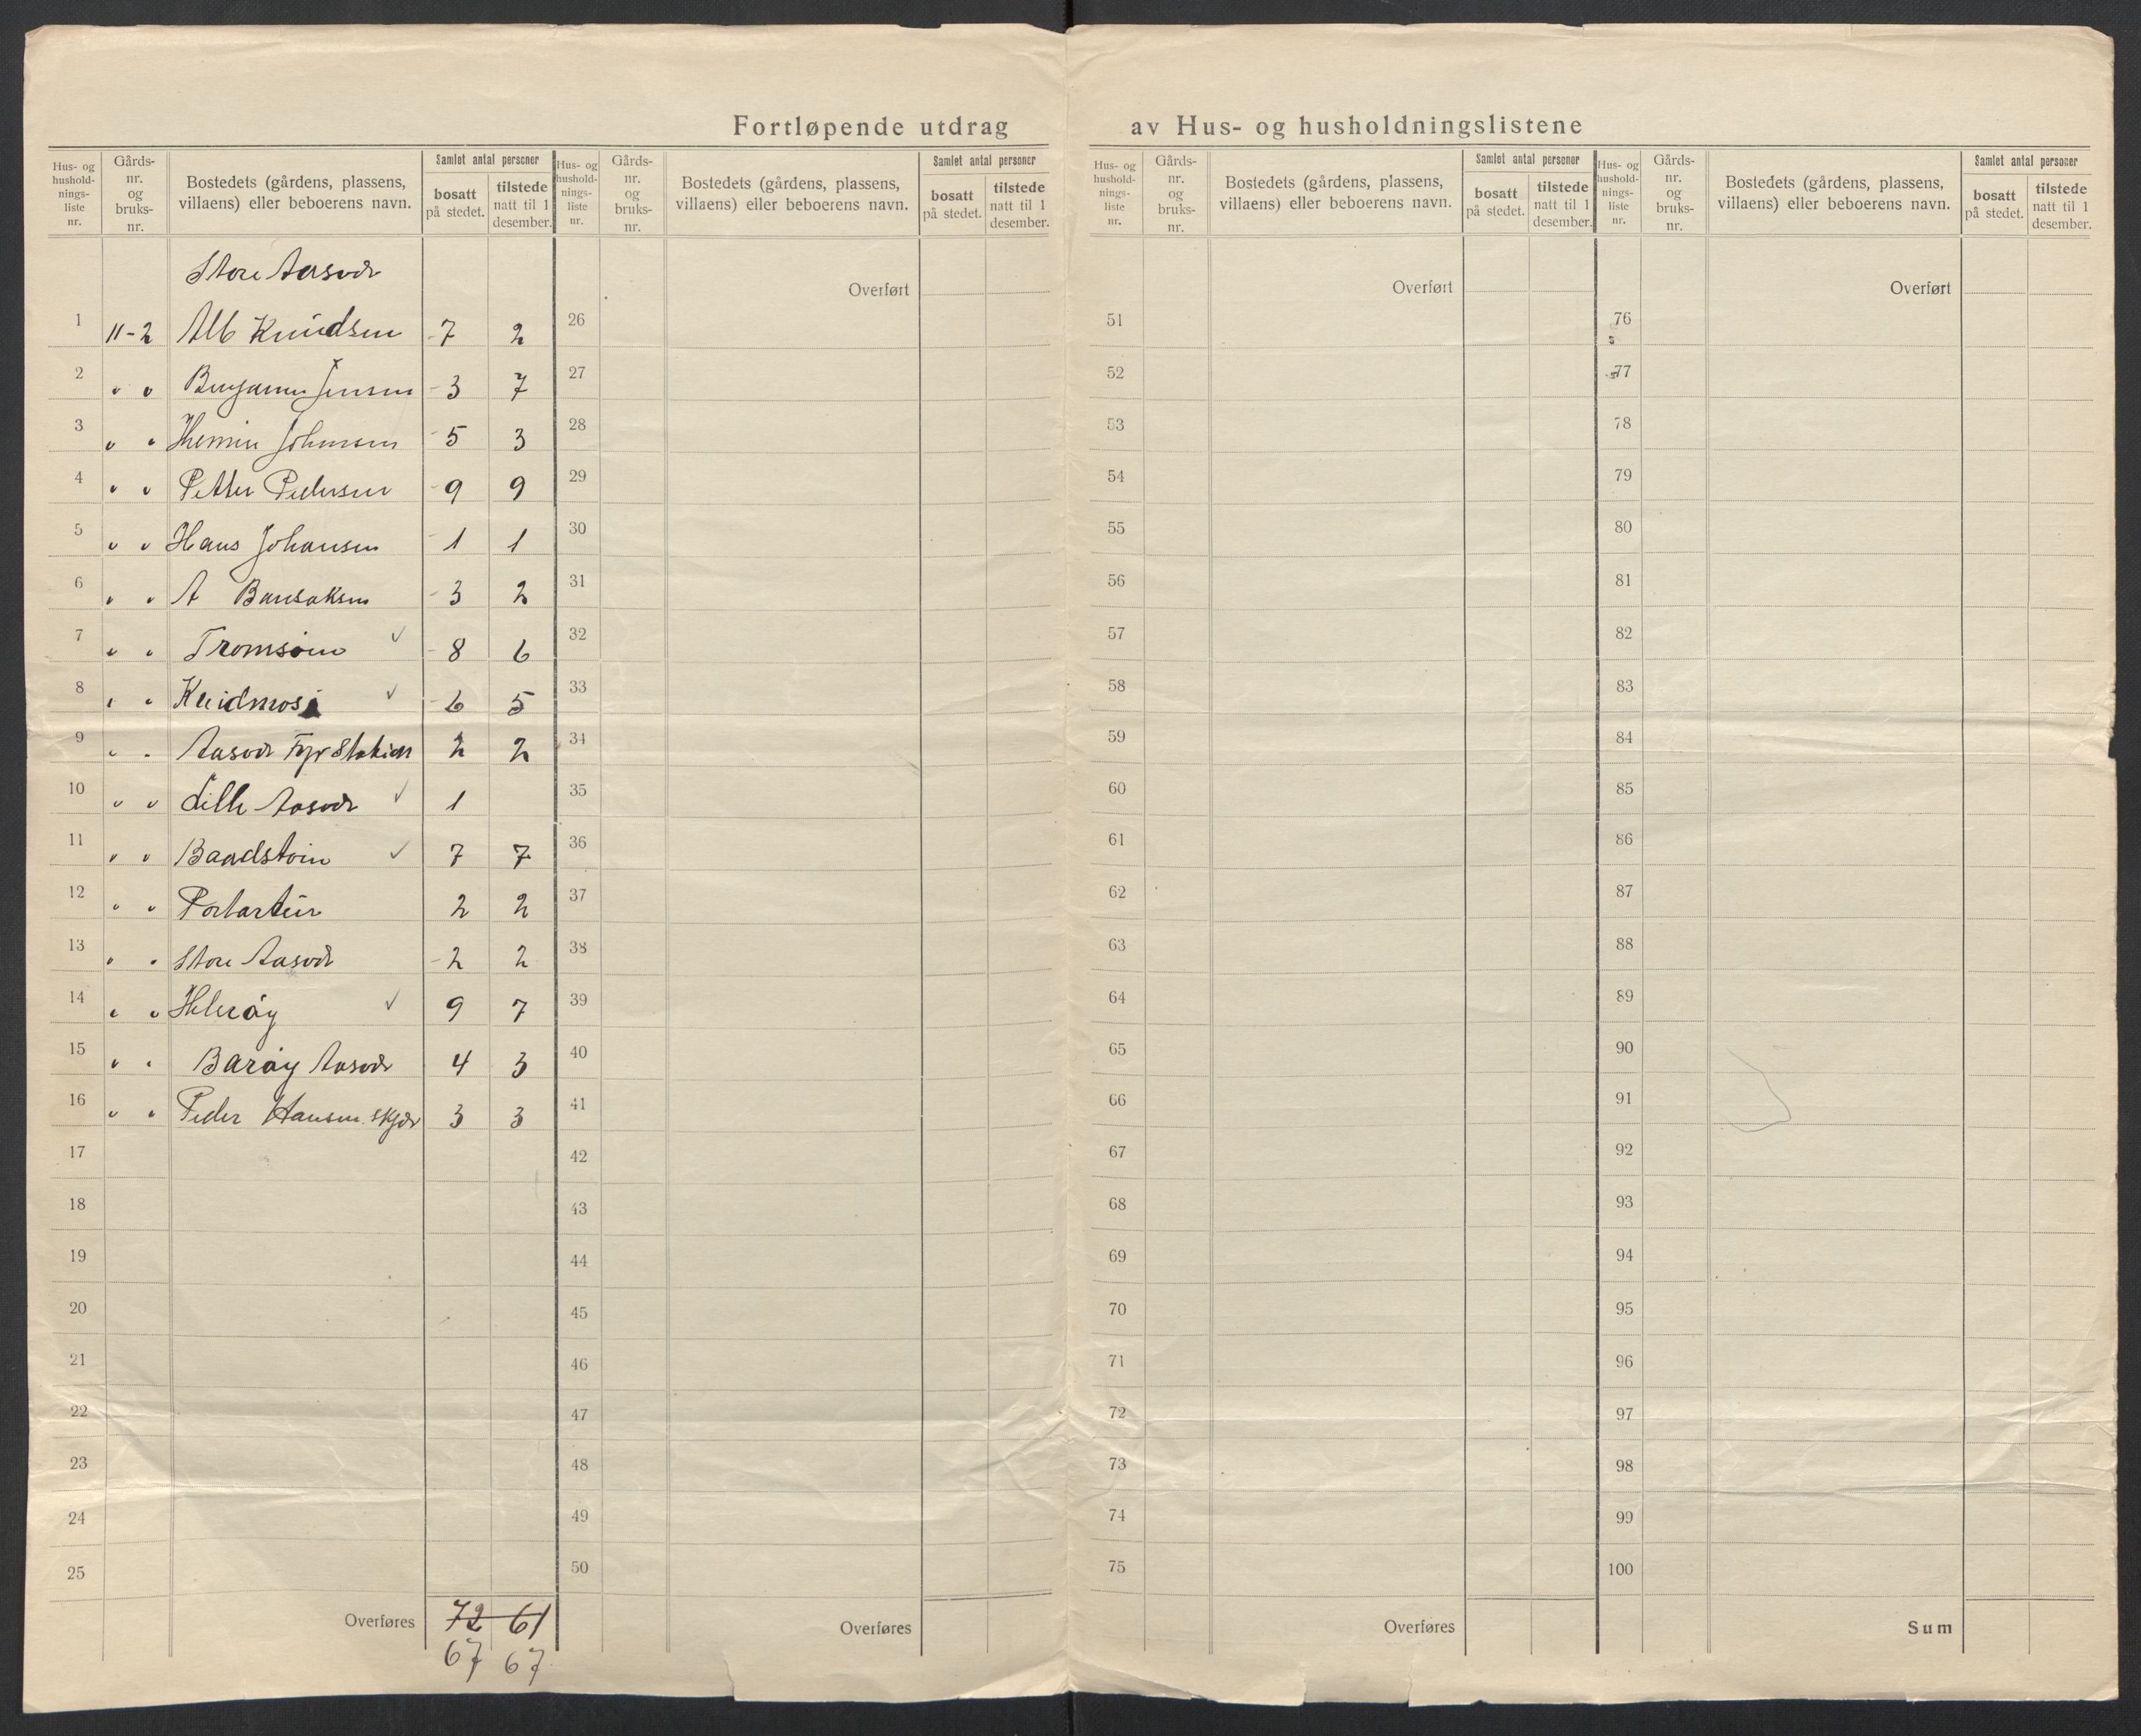 Fortløpende utdrag av Hus- og husholdningslistene
Hus- og hushold-nings-liste nr. Gårds-nr. og bruks-nr. Bostedets (gårdens, plassens, villaens) eller beboerens navn. Samlet antal personer bosatt på stedet. tilstede natt til 1 desember.
Hus- og hushold-nings-liste nr. Gårds-nr. og bruks-nr. Bostedets (gårdens, plassens, villaens) eller beboerens navn. Samlet antal personer bosatt på stedet. tilstede natt til 1 desember.
Hus- og hushold-nings-liste nr. Gårds-nr. og bruks-nr. Bostedets (gårdens, plassens, villaens) eller beboerens navn. Samlet antal personer bosatt på stedet. tilstede natt til 1 desember.
Hus- og hushold-nings-liste nr. Gårds-nr. og bruks-nr. Bostedets (gårdens, plassens, villaens) eller beboerens navn. Samlet antal personer bosatt på stedet. tilstede natt til 1 desember.
Store Aasvær
1 11-2 Alb Knudsen 7 2
2 " " Benjamin Jensen 3 7
3 " " Johansen 5 3
4 " " Petter Pedersen 9 9
5 " " Hans Johansen 1 1
6 " " A 3 2
7 " " Tromsöien ✓ 8 6
8 " " ✓ 6 5
9 " " Aasvær Fyr Station 2 2
10 " " Lille Aasvær ✓ 1
11 " " Baadstöin ✓ 7 7
12 " " Portartur 2 2
13 " " Store Aasvær 2 2
14 " " ✓ 9 7
15 " " Baröy Aasvær 4 3
16 " " Peder Hansen Skjær 3 3
17
18
19
20
21
22
23
24
25
Overføres 72 61
67 67
Overført
26
27
28
29
30
31
32
33
34
35
36
37
38
39
40
41
42
43
44
45
46
47
48
49
50
Overføres
Overført
51
52
53
54
55
56
57
58
59
60
61
62
63
64
65
66
67
68
69
70
71
72
73
74
75
Overføres
Overført
76
77
78
79
80
81
82
83
84
85
86
87
88
89
90
91
92
93
94
95
96
97
98
99
100
Sum